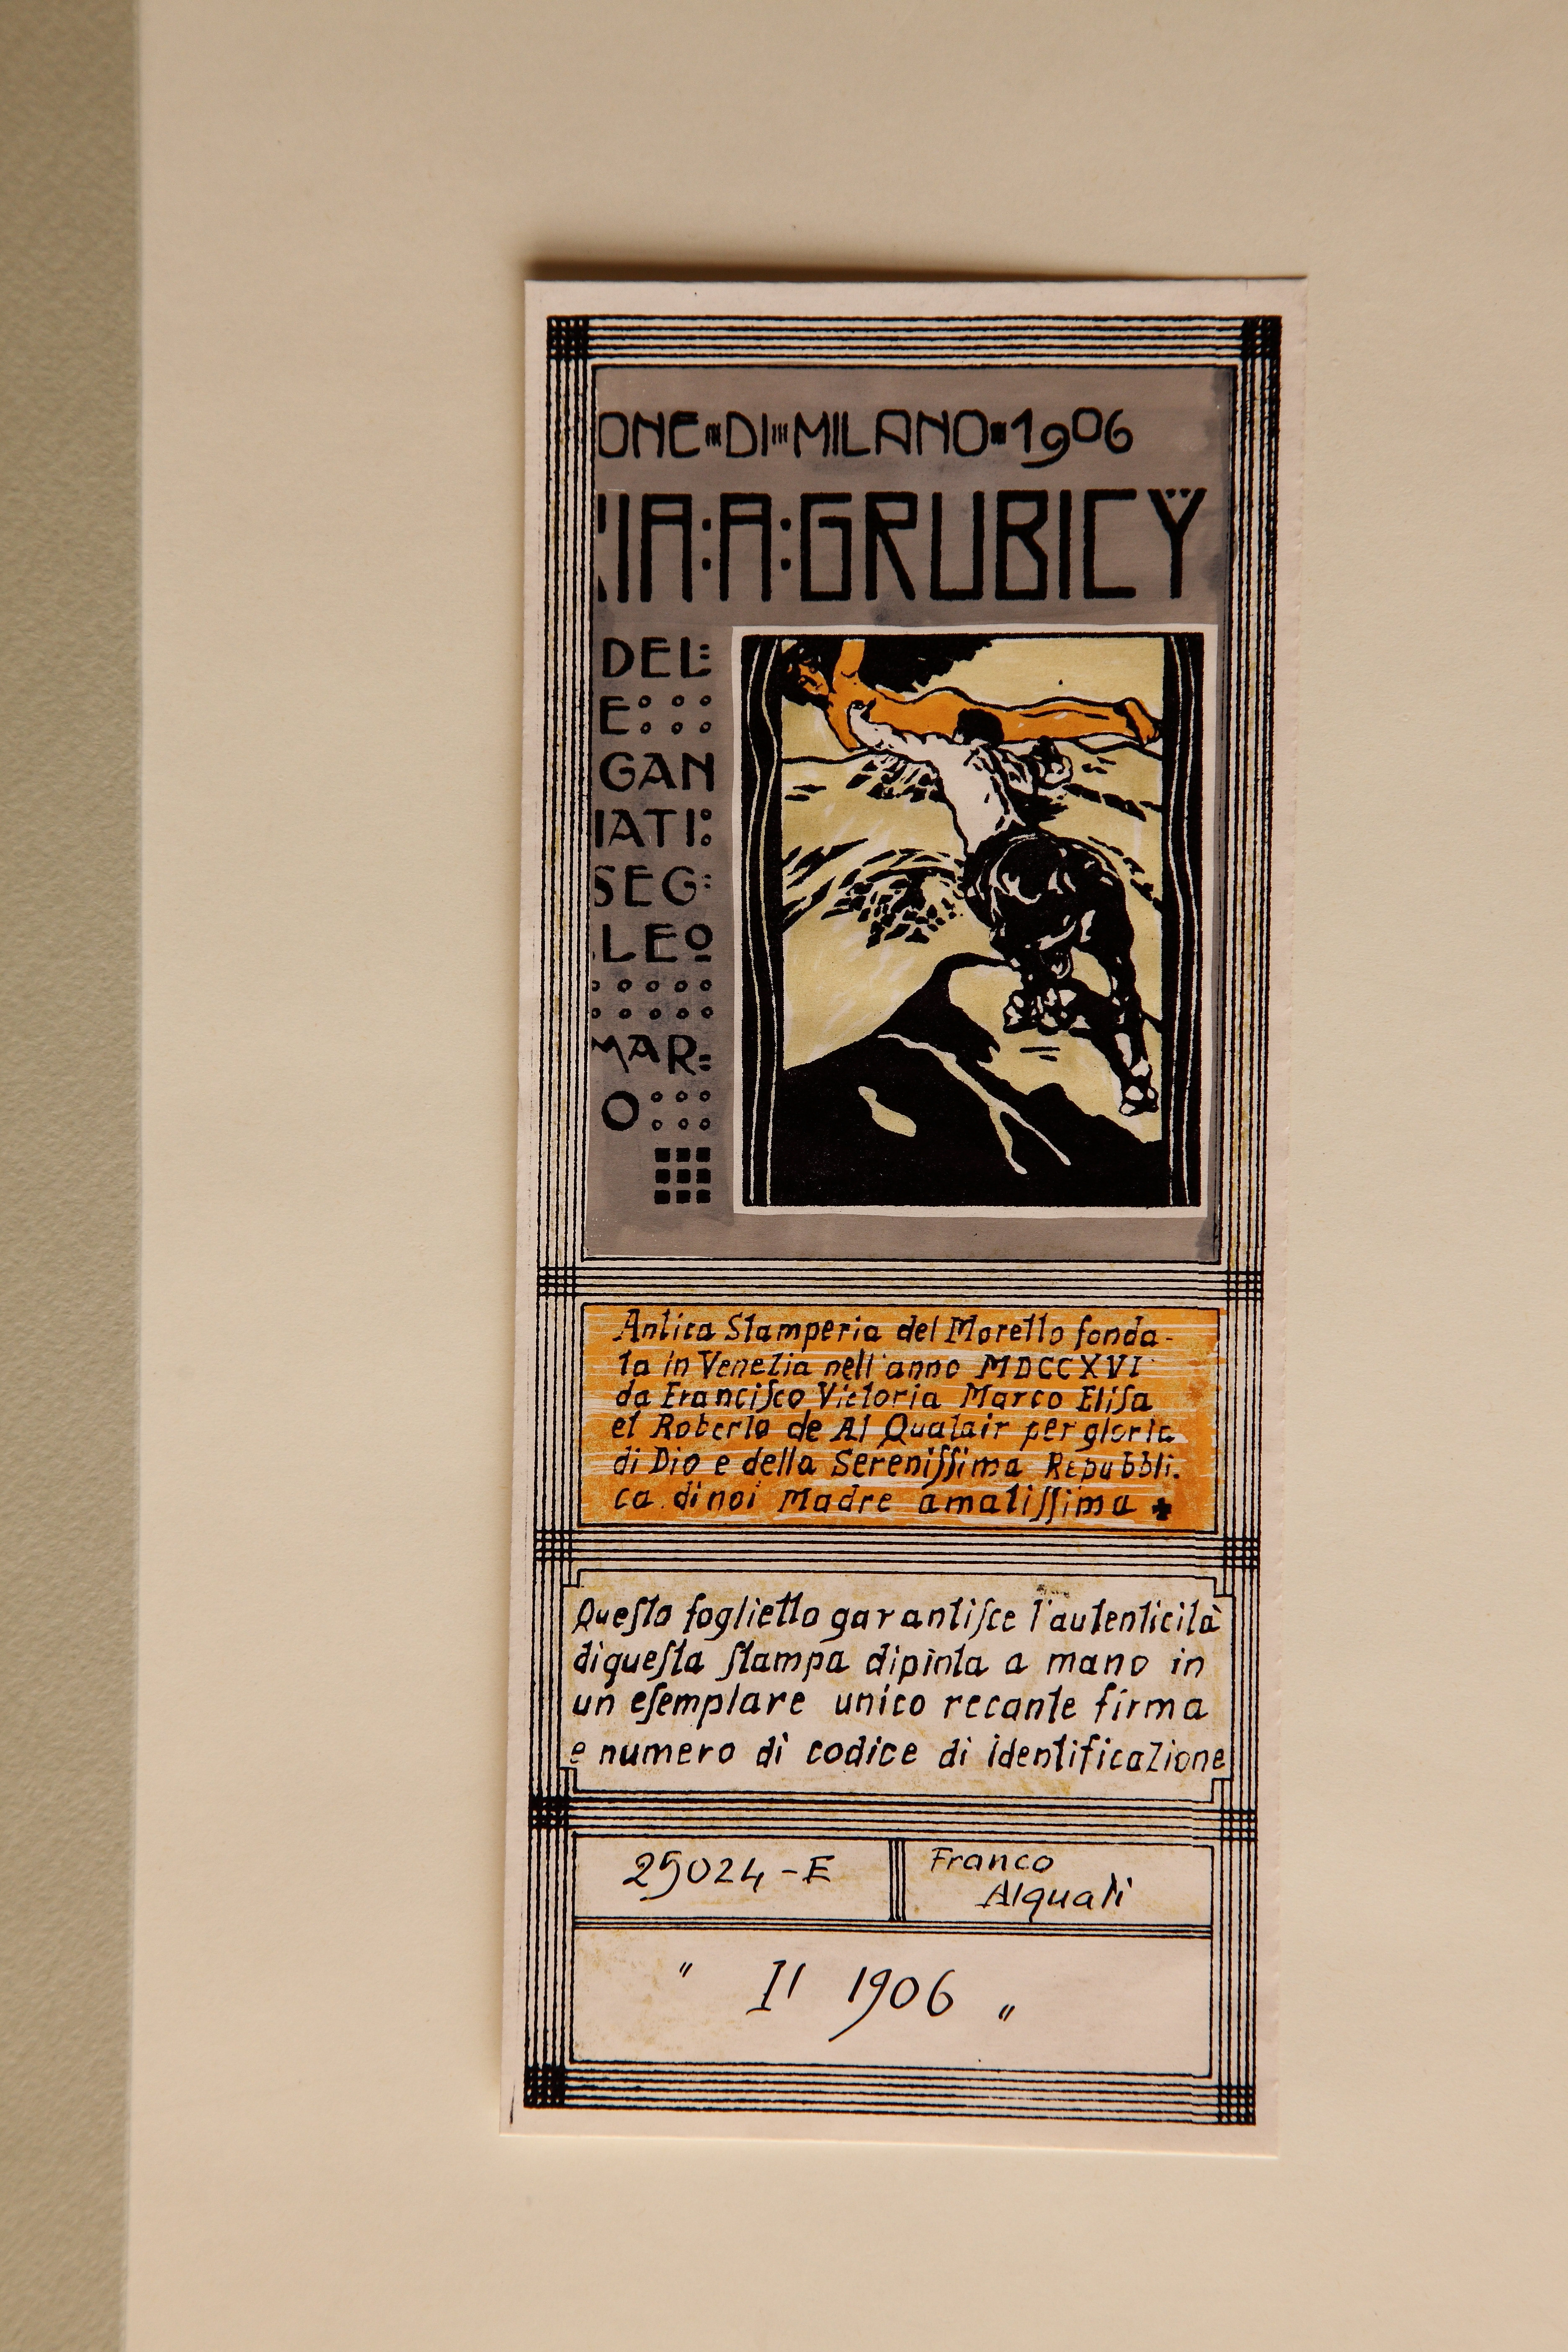 ONE DI MILANO 1906
IA:A:GRUBICY
DEL:
E
GAN
IATI:
SEG:
LEO
MAR:
O
Antica Stamperia del Moretto fonda-
ta in Venezia nell'anno MDCCXVI
da Franciſco Victoria Marco Eliſa
et Roberto de Al Qualair per gloria
di Dio e della Sereniſſima Repubbli.
ca di noi Madre amatiſſima ✚
Queſto foglietto garantiſce l'autenticità
di queſta ſtampa dipinta a mano in
un eſemplare unico recante firma
e numero di codice di identificazione
25024-E
Franco
Alquati
" Il 1906 "